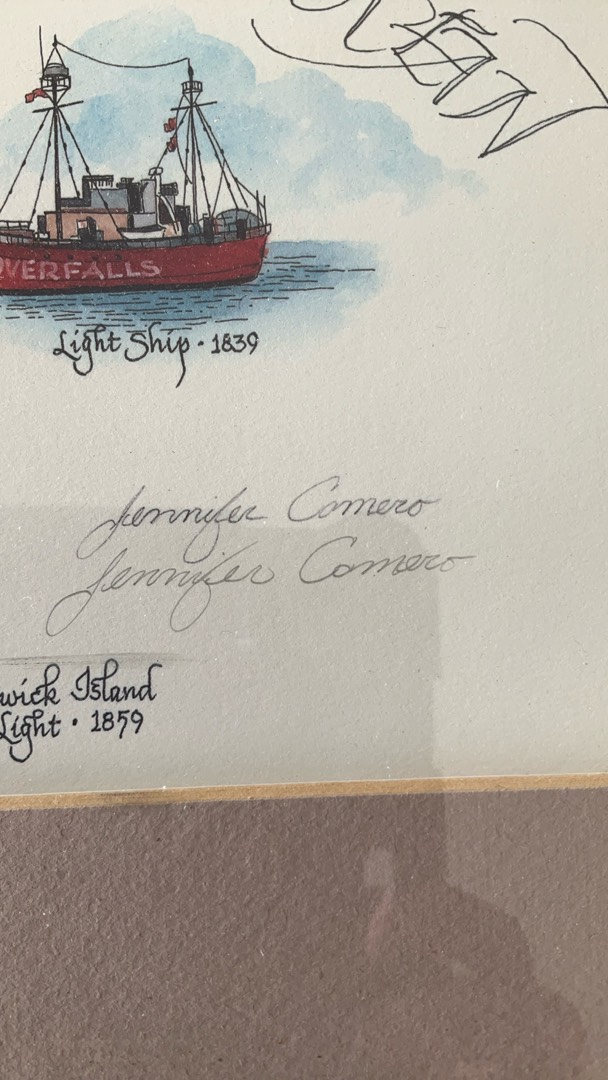 CEAN
OVERFALLS
Light Ship · 1839
Jennifer Comero
Jennifer Comero
wick Island
Light · 1859